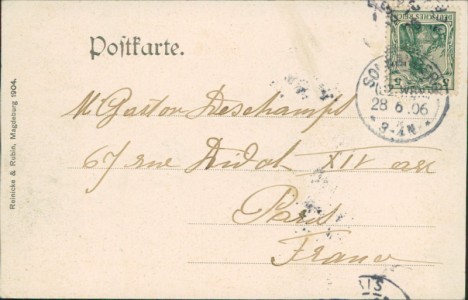 Postkarte.
DEUTSCHES REICH
28 6 .06
* 8-9 N. *
M. Gaston Deschamps
67 rue Didot XIV arr
Paris
France
Reinicke & Rubin, Magdeburg 1904.